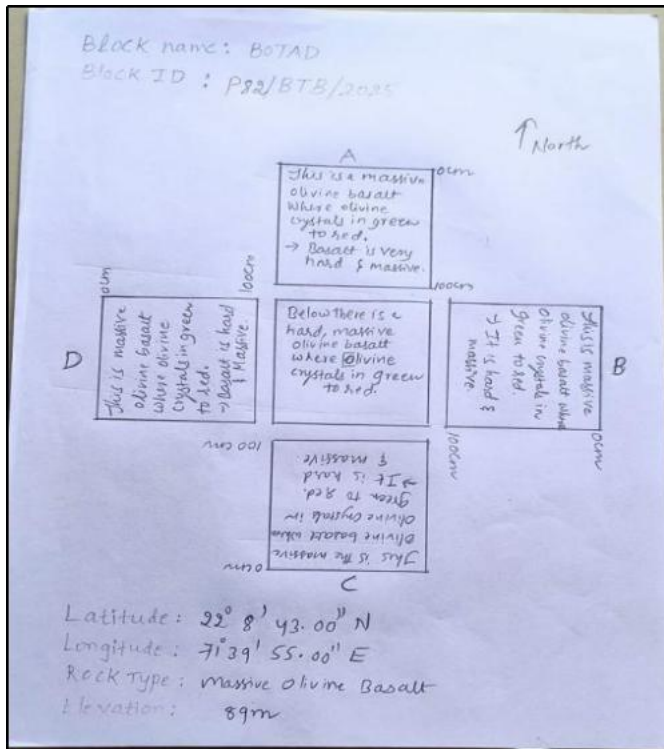 Block name: BOTAD
Block ID : P82/BTB/2025
↑ North
A
0cm
This is a massive
olivine basalt
where olivine
crystals in green
to red.
→ Basalt is very
hard & massive.
100cm
D
0cm
100cm
This is massive
olivine basalt
where olivine
crystals in green
to red.
→ Basalt is hard
& Massive.
Below there is a
hard, massive
olivine basalt
where Olivine
crystals in green
to red.
B
0cm
100cm
This is massive
olivine basalt
olivine crystals in
green to red.
→ It is hard &
massive.
C
0cm
100 cm
This is the massive
olivine basalt
olivine crystals in
green to red.
→ It is hard
& massive.
Latitude: 22° 8' 43.00" N
Longitude: 71° 39' 55.00" E
Rock Type: Massive Olivine Basalt
Elevation: 89m